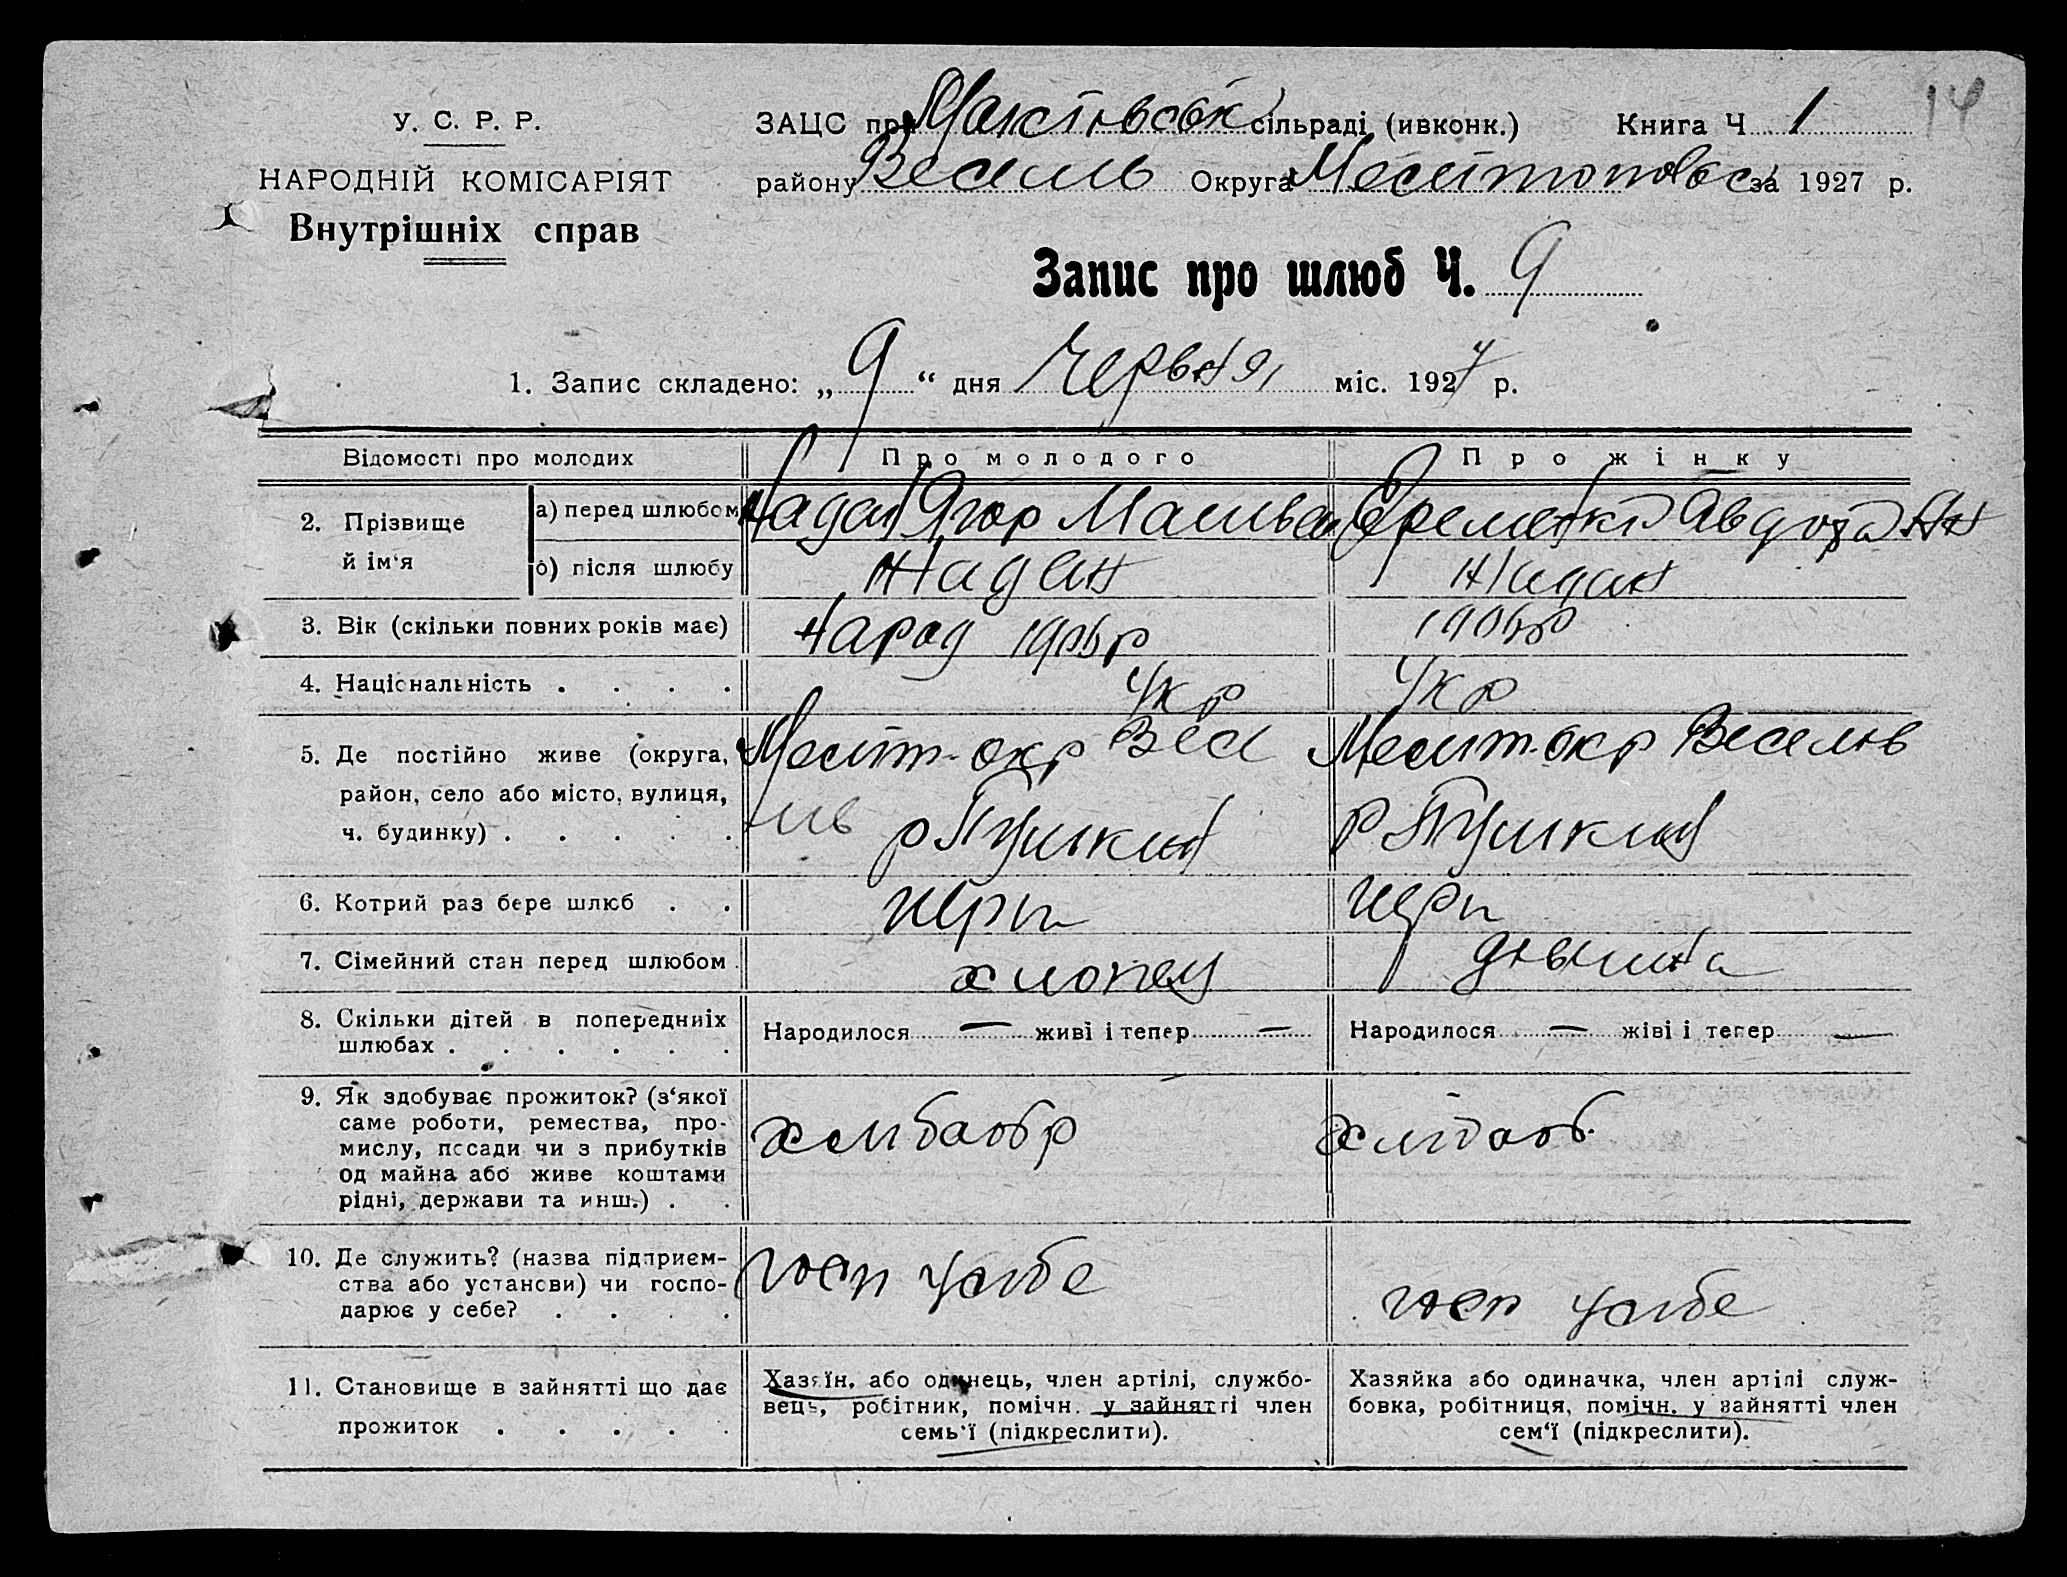 14
У. С. Р. Р.
НАРОДНІЙ КОМІСАРІЯТ
Внутрішніх справ
ЗАЦС при сільраді (ивконк.) Книга Ч 1
району Весель Округа за 1927 р.
Запис про шлюб Ч. 9
1. Запис складено: „ 9 “ дня Червня міс. 1927 р.
Відомості про молодих
Про молодого
Про жінку
2. Прізвище й ім‘я
а) перед шлюбом
Надан Ягор
б) після шлюбу
Надан
Надан
3. Вік (скільки повних років має)
Народ 1906 р
1906 р
4. Національність . . . .
Укр
Укр
5. Де постійно живе (округа,
район, село або місто, вулиця,
ч. будинку) . . . . .
Меліт-окр Весе
лів р Пушкин
Меліт-окр Веселів
р Пушкин
6. Котрий раз бере шлюб . .
перш
перш
7. Сімейний стан перед шлюбом .
хлопец
дівчина
8. Скільки дітей в попередниіх
шлюбах . . . . . .
Народилося — живі і тепер —
Народилося — живі і тепер —
9. Як здобуває прожиток? (з‘якої
саме роботи, ремества, про-
мислу, посади чи з прибутків
од майна або живе коштами
рідні, держави та инш.) . .
хлибаобр
хлібооб.
10. Де служить? (назва підприєм-
ства або установи) чи госпо-
дарює у себе? . . . .
госп у себе
госп у себе
11. Становище в зайнятті що дає
прожиток . . . . .
Хазяїн, або одинець, член артілі, службо-
вець, робітник, помічн. у зайнятті член
семь‘ї (підкреслити).
Хазяйка або одиначка, член артілі служ-
бовка, робітниця, помічн. у зайнятті член
сем‘ї (підкреслити).